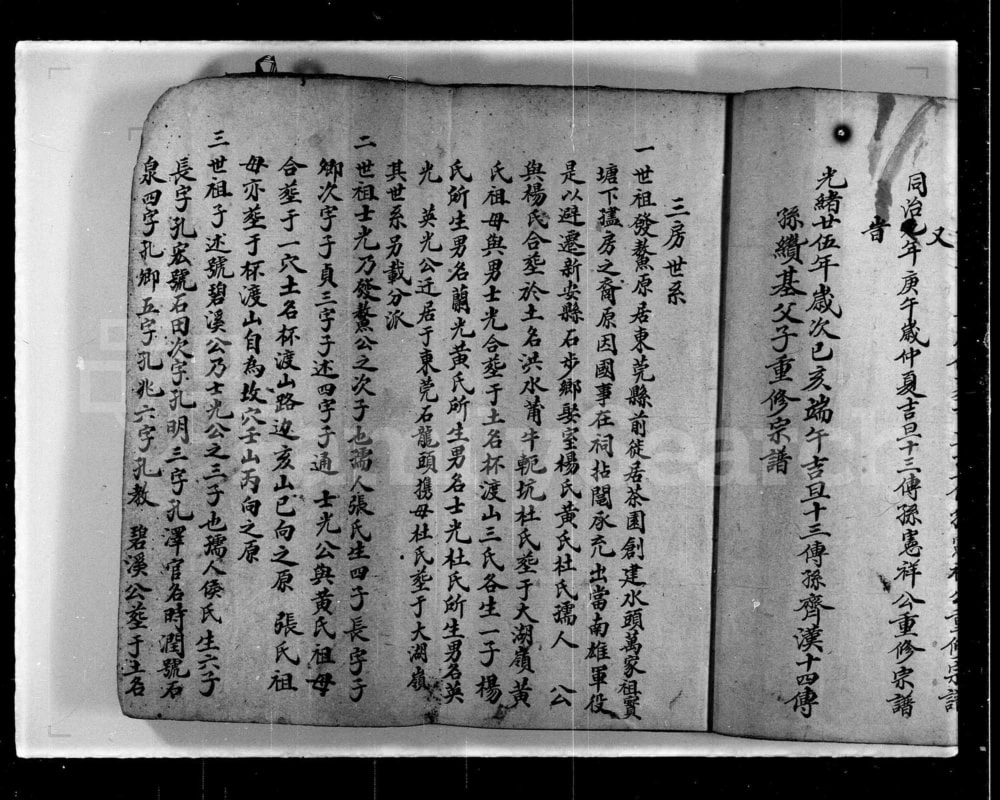 又
同治九年庚午歲仲夏吉旦十三傳孫憲祥公重修宗譜
旹
光緒廿伍年歲次己亥端午吉旦十三傳孫齊漢十四傳
孫纘基父子重修宗譜
三房世系
一世祖發鰲原居東莞縣前徙居茶園創建水頭萬家祖實
塘下𡎚房之裔原因國事在祠拈鬮承充出當南雄軍役
是以避遷新安縣石步鄉娶室楊氏黃氏杜氏孺人 公
與楊氏合塟於土名洪水莆牛軛坑杜氏塟于大湖嶺黃
氏祖母與男士光合塟于土名杯渡山三氏各生一子楊
氏所生男名蘭光黃氏所生男名士光杜氏所生男名英
光 英光公迁居于東莞石龍頭携母杜氏塟于大湖嶺
其世系另載分派
二世祖士光乃發鰲公之次子也孺人張氏生四子長字子
卿次字子貞三字子述四字子通 士光公與黃氏祖母
合塟于一穴土名杯渡山路边亥山巳向之原 張氏祖
母亦塟于杯渡山自為坟穴壬山丙向之原
三世祖子述號碧溪公乃士光公之三子也孺人侯氏生六子
長字孔宏號石田次字孔明三字孔澤官名時潤號石
泉四字孔卿五字孔兆六字孔教 碧溪公塟于土名